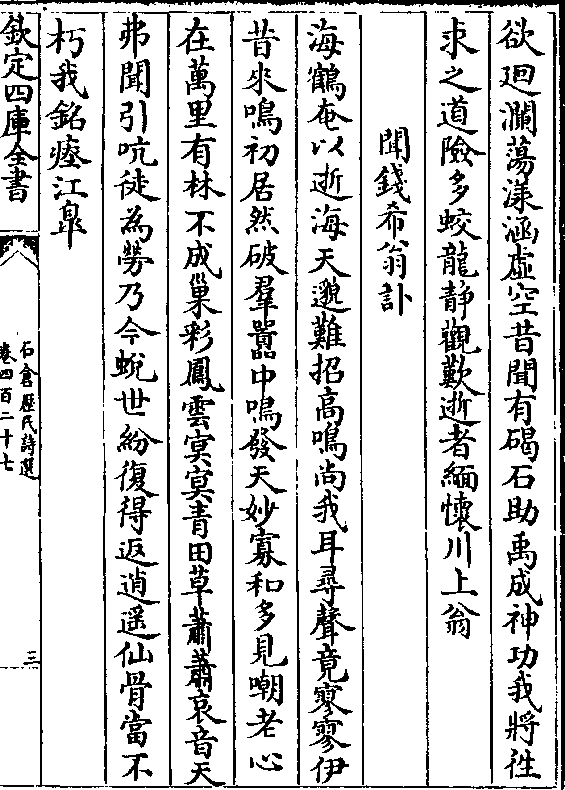 欲迴瀾蕩漾涵虛空昔聞有碣石助禹成神功我將徃
求之道險多蛟龍靜觀歎逝者緬懷川上翁
聞錢希翁訃
海鶴奄以逝海天邈難招高鳴尚我耳尋聲竟寥寥伊
昔來鳴初居然破羣囂中鳴發天妙寡和多見嘲老心
在萬里有林不成巢彩鳳雲㝠㝠青田草蕭蕭哀音天
弗聞引吭徒為勞乃今蛻世紛復得返逍遥仙骨當不
朽我銘瘞江臯
欽定四庫全書
石倉歷代詩選
卷四百二十七
三